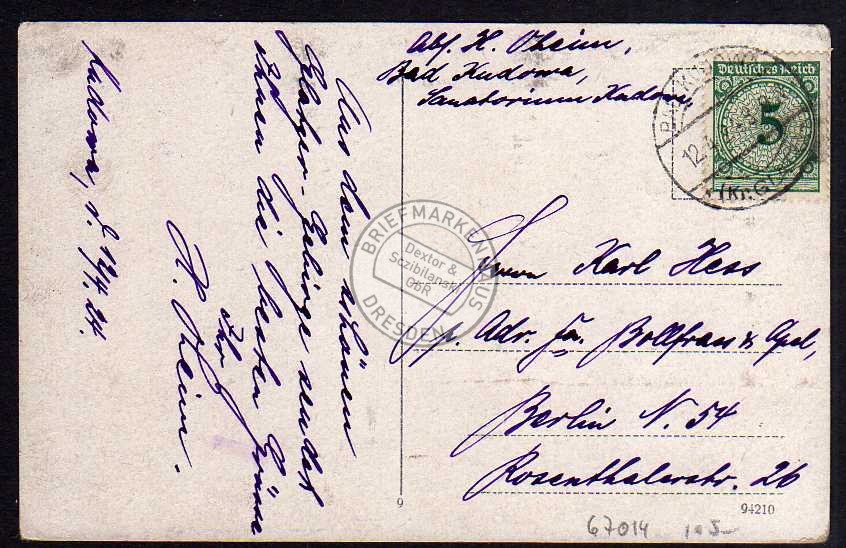 Abs. H. Oheim,
Bad Kudowa,
Sanatorium Kudowa,
Deutsches Reich
5
12.4
(Kr. Gl
Kudowa, d. 12/4. 24.
Aus dem schönen
Glatzer-Gebirge sendet
Ihnen die besten Grüsse
Ihr
H. Oheim.
Herrn Karl Hess
p. Adr. Fa. Bollfrass & Apel,
Berlin N. 54
Rosenthalerstr. 26
9
94210
67014
BRIEFMARKENHAUS
Dextor &
Sczibilanski
GbR
DRESDEN